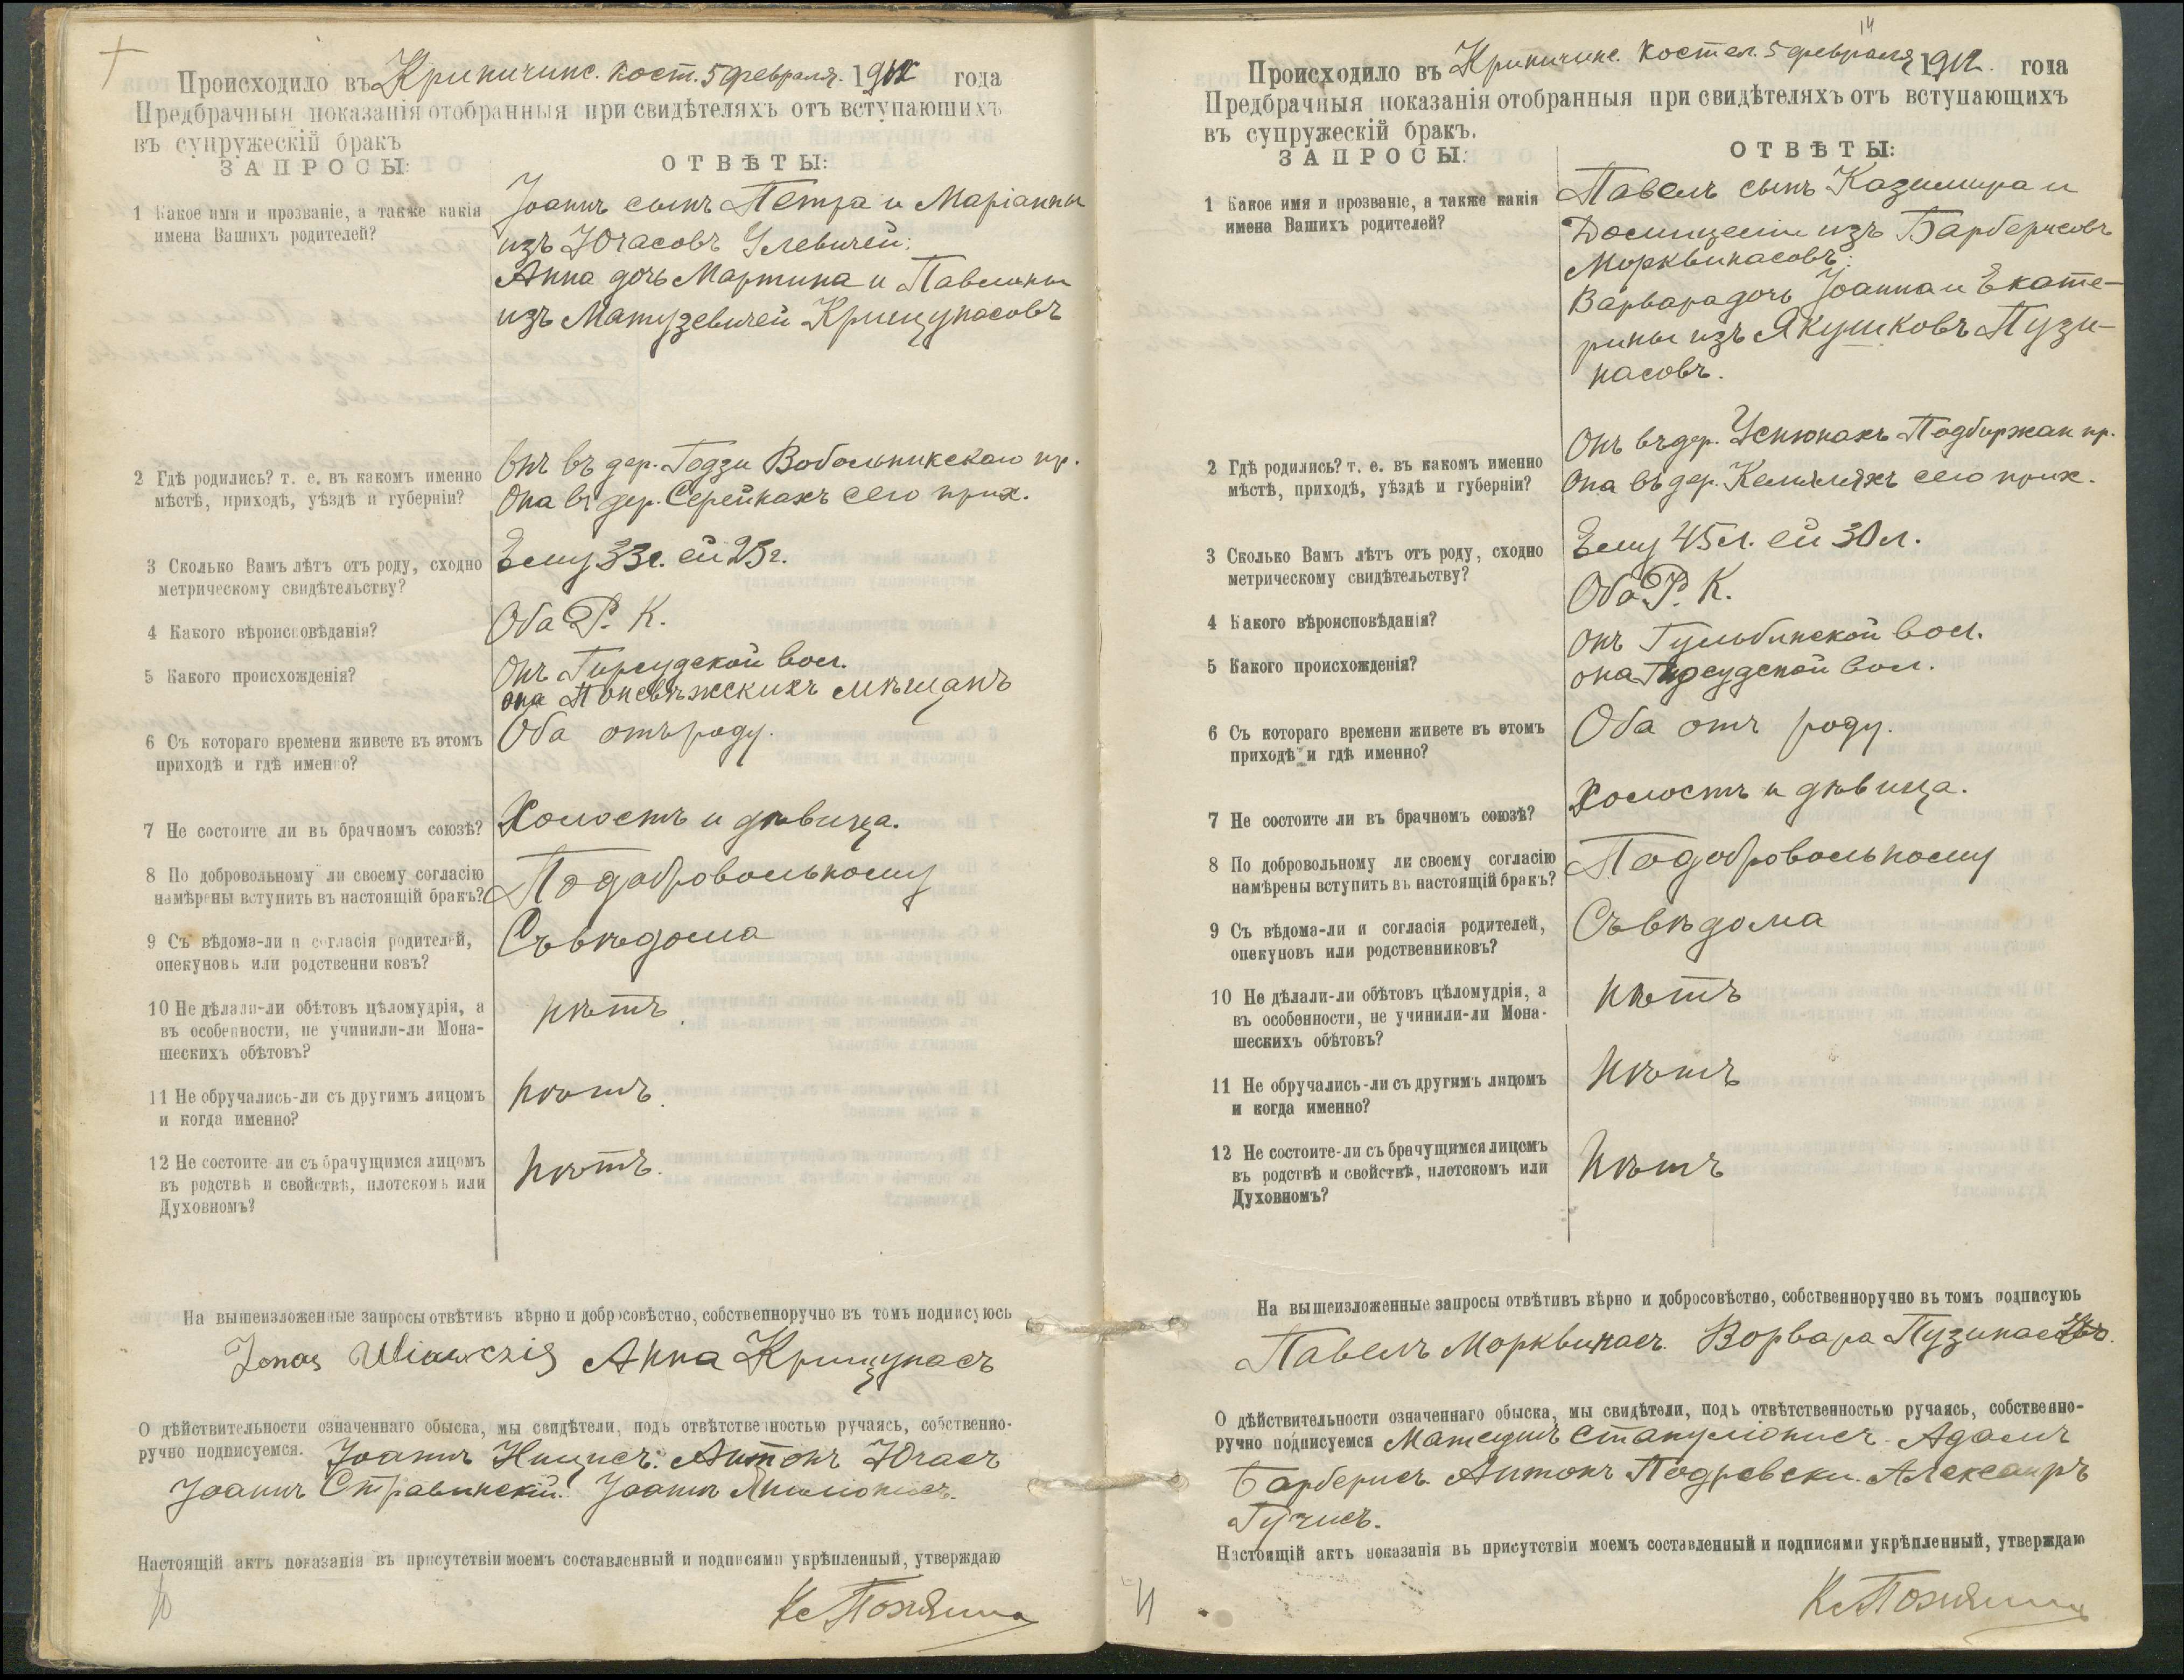 Происходило въ Крипичинс. кост. 5 февраля. 1912 года
Предбрачныя показанія отобранныя при свидѣтеляхъ отъ вступающихъ
въ супружескій бракъ
ЗАПРОСЫ:
ОТВѢТЫ:
1 Какое имя и прозваніе, а также какія
имена Вашихъ родителей?
Іоаннъ сынъ Петра и Маріанны
изъ Югасовъ Улевичей;
Анна дочь Мартина и Павлины
изъ Матузевичей Крищунасовъ
2 Гдѣ родились? т. е. въ какомъ именно
мѣстѣ, приходѣ, уѣздѣ и губерніи?
Онъ въ дер. Годзи Вобольникскаго пр.
Она въ дер. Серейкахъ сего прих.
3 Сколько Вамъ лѣтъ отъ роду, сходно
метрическому свидѣтельству?
Ему 33 г. ей 25 г.
4 Какого вѣроисповѣданія?
Оба Р. К.
5 Какого происхожденія?
Онъ Гирсудской вол.
она Поневѣжскихъ мѣщанъ
6 Съ котораго времени живете въ этомъ
приходѣ и гдѣ именно?
Оба отъ роду.
7 Не состоите ли въ брачномъ союзѣ?
Холостъ и дѣвица.
8 По добровольному ли своему согласію
намѣрены вступить въ настоящій бракъ?
По добровольному
9 Съ вѣдома-ли и согласія родителей,
опекуновъ или родственни ковъ?
Съ вѣдома
10 Не дѣлали-ли обѣтовъ цѣломудрія, а
въ особенности, не учинили-ли Мона-
шескихъ обѣтовъ?
нѣтъ.
11 Не обручались-ли съ другимъ лицомъ
и когда именно?
нѣтъ.
12 Не состоите ли съ брачущимся лицомъ
въ родствѣ и свойствѣ, плотскомъ или
Духовномъ?
нѣтъ.
На вышеизложенные запросы отвѣтивъ вѣрно и добросовѣстно, собственноручно въ томъ подписуюсь
Jonas Ulewczis Анна Крищунасъ
О дѣйствительности означеннаго обыска, мы свидѣтели, подъ отвѣтственностью ручаясь, собственно-
ручно подписуемся. Іоаннъ Ницисъ. Антонъ Югасъ
Іоаннъ Стравинскій. Іоаннъ
Настоящій актъ показанія въ присутствіи моемъ составленный и подписями укрѣпленный, утверждаю
10
14
Происходило въ Крипичинс. костел. 5 февраля 1912. года
Предбрачныя показанія отобранныя при свидѣтеляхъ отъ вступающихъ
въ супружескій бракъ.
ЗАПРОСЫ:
ОТВѢТЫ:
1 Какое имя и прозваніе, а также какія
имена Вашихъ родителей?
Павелъ сынъ Казимира и
Домицеліи изъ Барберисовъ
Морквинасовъ;
Варвара дочь Іоанна и Екате-
рины изъ Якушковъ Пузи-
насовъ.
2 Гдѣ родились? т. е. въ какомъ именно
мѣстѣ, приходѣ, уѣздѣ и губерніи?
Онъ въ дер. Успюнахъ Подбиржан пр.
Она въ дер. Кемляхъ сего прих.
3 Сколько Вамъ лѣтъ отъ роду, сходно
метрическому свидѣтельству?
Ему 45 л. ей 30 л.
4 Какого вѣроисповѣданія?
Оба Р. К.
5 Какого происхожденія?
Онъ Гульбинской вол.
она Гирсудской вол.
6 Съ котораго времени живете въ этомъ
приходѣ и гдѣ именно?
Оба отъ роду.
7 Не состоите ли въ брачномъ союзѣ?
Холостъ и дѣвица.
8 По добровольному ли своему согласію
намѣрены вступить въ настоящій бракъ?
По добровольному
9 Съ вѣдома-ли и согласія родителей,
опекуновъ или родственниковъ?
Съ вѣдома
10 Не дѣлали-ли обѣтовъ цѣломудрія, а
въ особенности, не учинили-ли Мона-
шескихъ обѣтовъ?
нѣтъ
11 Не обручались-ли съ другимъ лицомъ
и когда именно?
нѣтъ
12 Не состоите-ли съ брачущимся лицомъ
въ родствѣ и свойствѣ, плотскомъ или
Духовномъ?
нѣтъ
На вышеизложенные запросы отвѣтивъ вѣрно и добросовѣстно, собственноручно въ томъ подписуюь
Павелъ Морквинасъ. Ворвара Пузинасовъ.
О дѣйствительности означеннаго обыска, мы свидѣтели, подъ отвѣтственностью ручаясь, собственно-
ручно подписуемся Матеушъ Станулёнисъ. Адамъ
Барберисъ. Антонъ Подревски. Александръ
Гучисъ.
Настоящій актъ показанія въ присутствіи моемъ составленный и подписями укрѣпленный, утверждаю
11